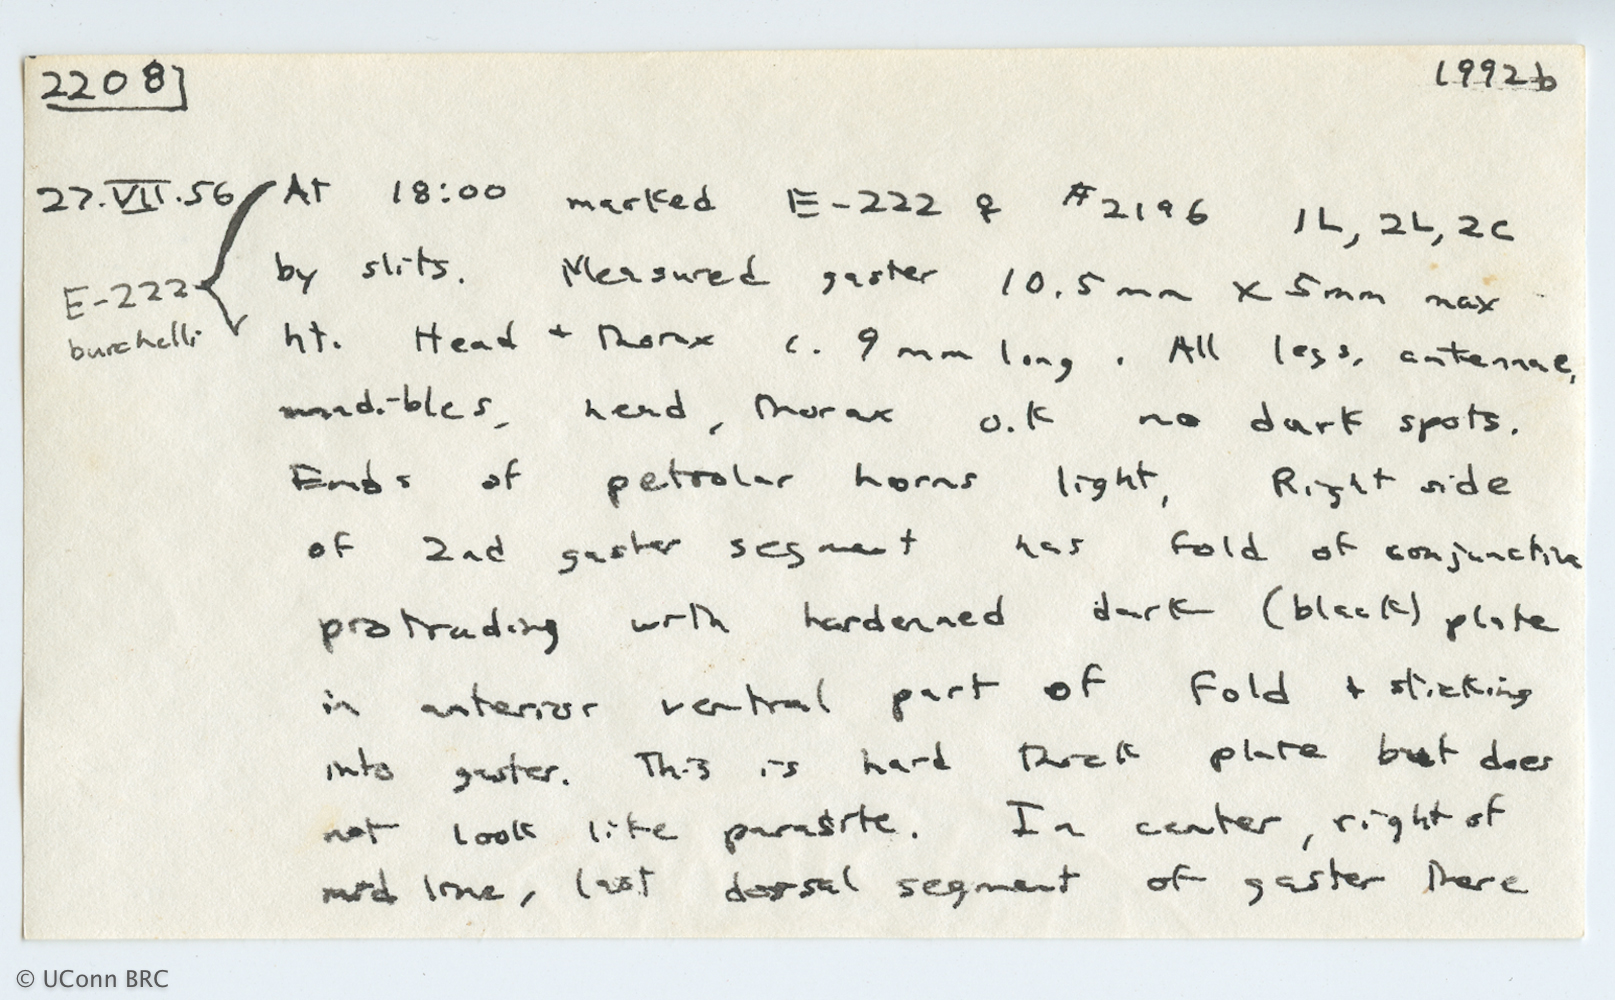 2208]
1992b
27.VII.56 At 18:00 marked E-222 ♀ #2196 1L, 2L, 2C
by slits. Measured gaster 10.5mm x 5mm max
E-222
burchelli
ht. Head + thorax c. 9mm long. All legs, antennae,
mandibles, head, thorax o.k no dark spots.
Ends of petiolar horns light, Right side
of 2nd gaster segment has fold of conjunctiva
protruding with hardenned dark (black) plate
in anterior ventral part of fold + sticking
into gaster. This is hard thick plate but does
not look like parasite. In center, right of
mid line, last dorsal segment of gaster there
© UConn BRC